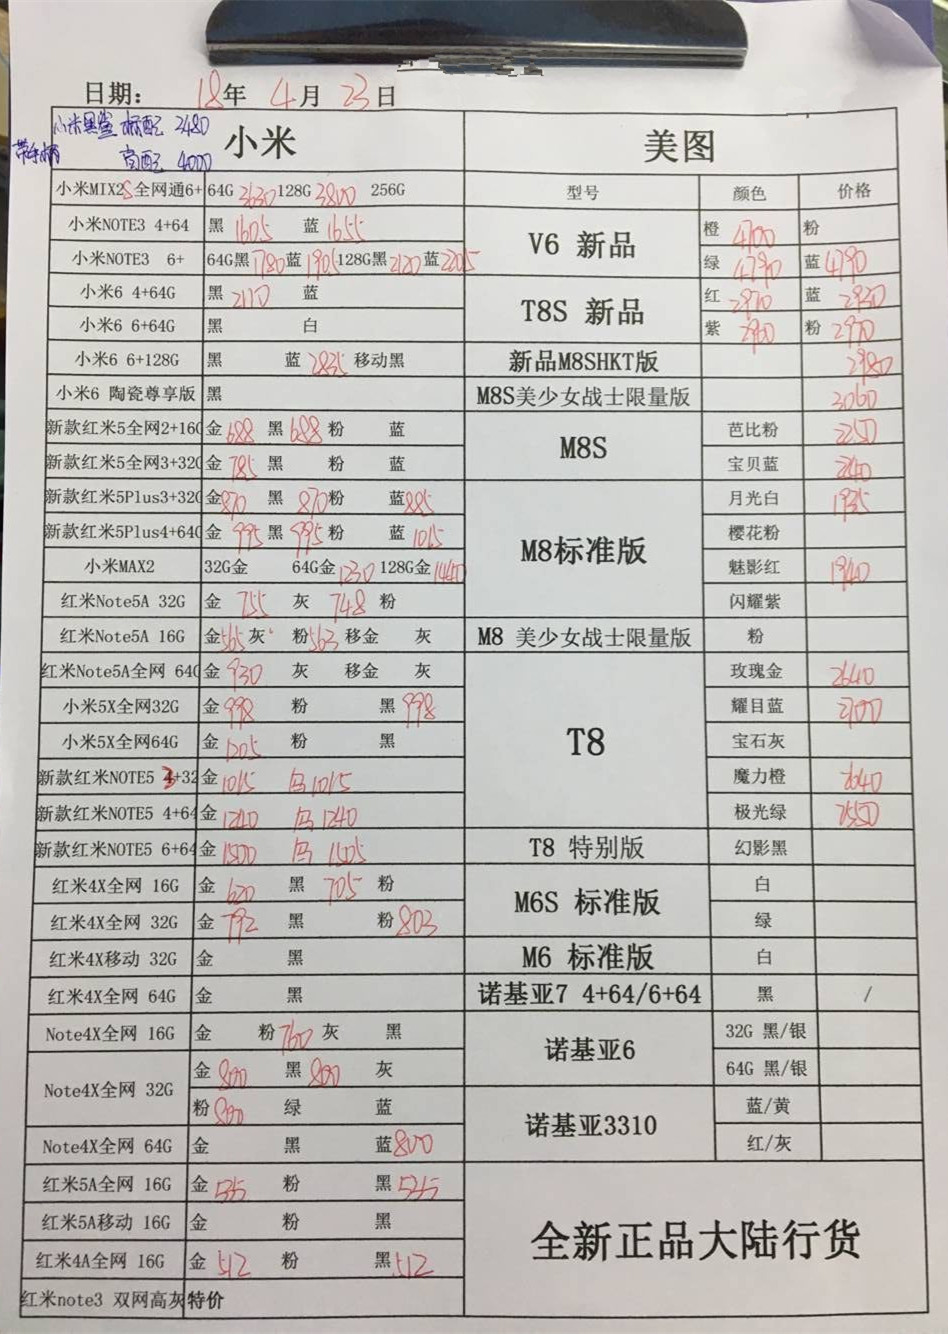 日期: 18年 4月 23日
小米黑鲨 标配 2480
带手柄 高配 4000
小米 美图
小米MIX2S全网通6+ 64G 3630 128G 3800 256G
型号 颜色 价格
小米NOTE3 4+64 黑 1605 蓝 1655
V6 新品 橙 4700 粉
小米NOTE3 6+ 64G黑 1780 蓝 1905 128G黑 2120 蓝 2205
绿 4790 蓝 4790
小米6 4+64G 黑 2110 蓝
T8S 新品 红 2970 蓝 2930
小米6 6+64G 黑 白
紫 2900 粉 2970
小米6 6+128G 黑 蓝 2835 移动黑
新品M8SHKT版 2980
小米6 陶瓷尊享版 黑
M8S美少女战士限量版 3060
新款红米5全网2+16G 金 688 黑 688 粉 蓝
M8S 芭比粉 2250
新款红米5全网3+32G 金 785 黑 粉 蓝
宝贝蓝 2240
新款红米5Plus3+32G 金 870 黑 870 粉 蓝 885
M8标准版 月光白 1935
新款红米5Plus4+64G 金 995 黑 995 粉 蓝 1015
樱花粉
小米MAX2 32G金 64G金 1230 128G金 1440
魅影红 1940
红米Note5A 32G 金 755 灰 748 粉
闪耀紫
红米Note5A 16G 金 565 灰 粉 563 移金 灰
M8 美少女战士限量版 粉
红米Note5A全网 64G 金 930 灰 移金 灰
T8 玫瑰金 2640
小米5X全网32G 金 998 粉 黑 998
耀目蓝 2700
小米5X全网64G 金 1205 粉 黑
宝石灰
新款红米NOTE5 3+32 金 1015 乌 1015
魔力橙 2640
新款红米NOTE5 4+64 金 1240 乌 1240
极光绿 2550
新款红米NOTE5 6+64 金 1500 乌 1505
T8 特别版 幻影黑
红米4X全网 16G 金 620 黑 705 粉
M6S 标准版 白
红米4X全网 32G 金 792 黑 粉 803
绿
红米4X移动 32G 金 黑
M6 标准版 白
红米4X全网 64G 金 黑
诺基亚7 4+64/6+64 黑 /
Note4X全网 16G 金 粉 760 灰 黑
诺基亚6 32G 黑/银
Note4X全网 32G 金 800 黑 800 灰
64G 黑/银
粉 800 绿 蓝
诺基亚3310 蓝/黄
Note4X全网 64G 金 黑 蓝 800
红/灰
红米5A全网 16G 金 545 粉 黑 545
红米5A移动 16G 金 粉 黑
全新正品大陆行货
红米4A全网 16G 金 512 粉 黑 512
红米note3 双网高灰 特价